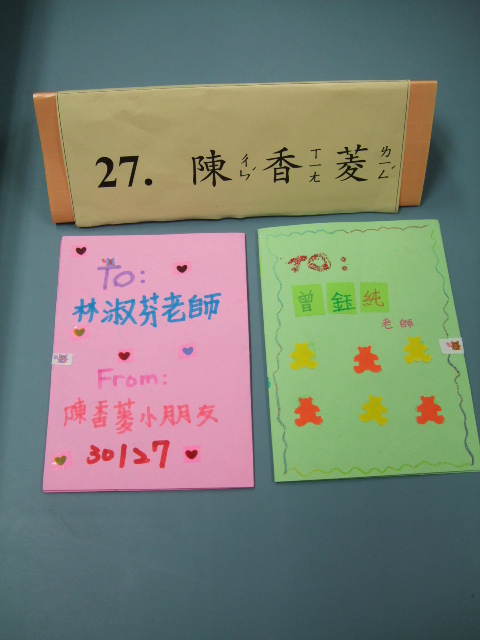 27. 陳香菱
ㄔㄣˊ ㄒㄧㄤ ㄌㄧㄥˊ
To:
林淑芬老師
From:
陳香菱小朋友
30127
TO:
曾鈺純
老師